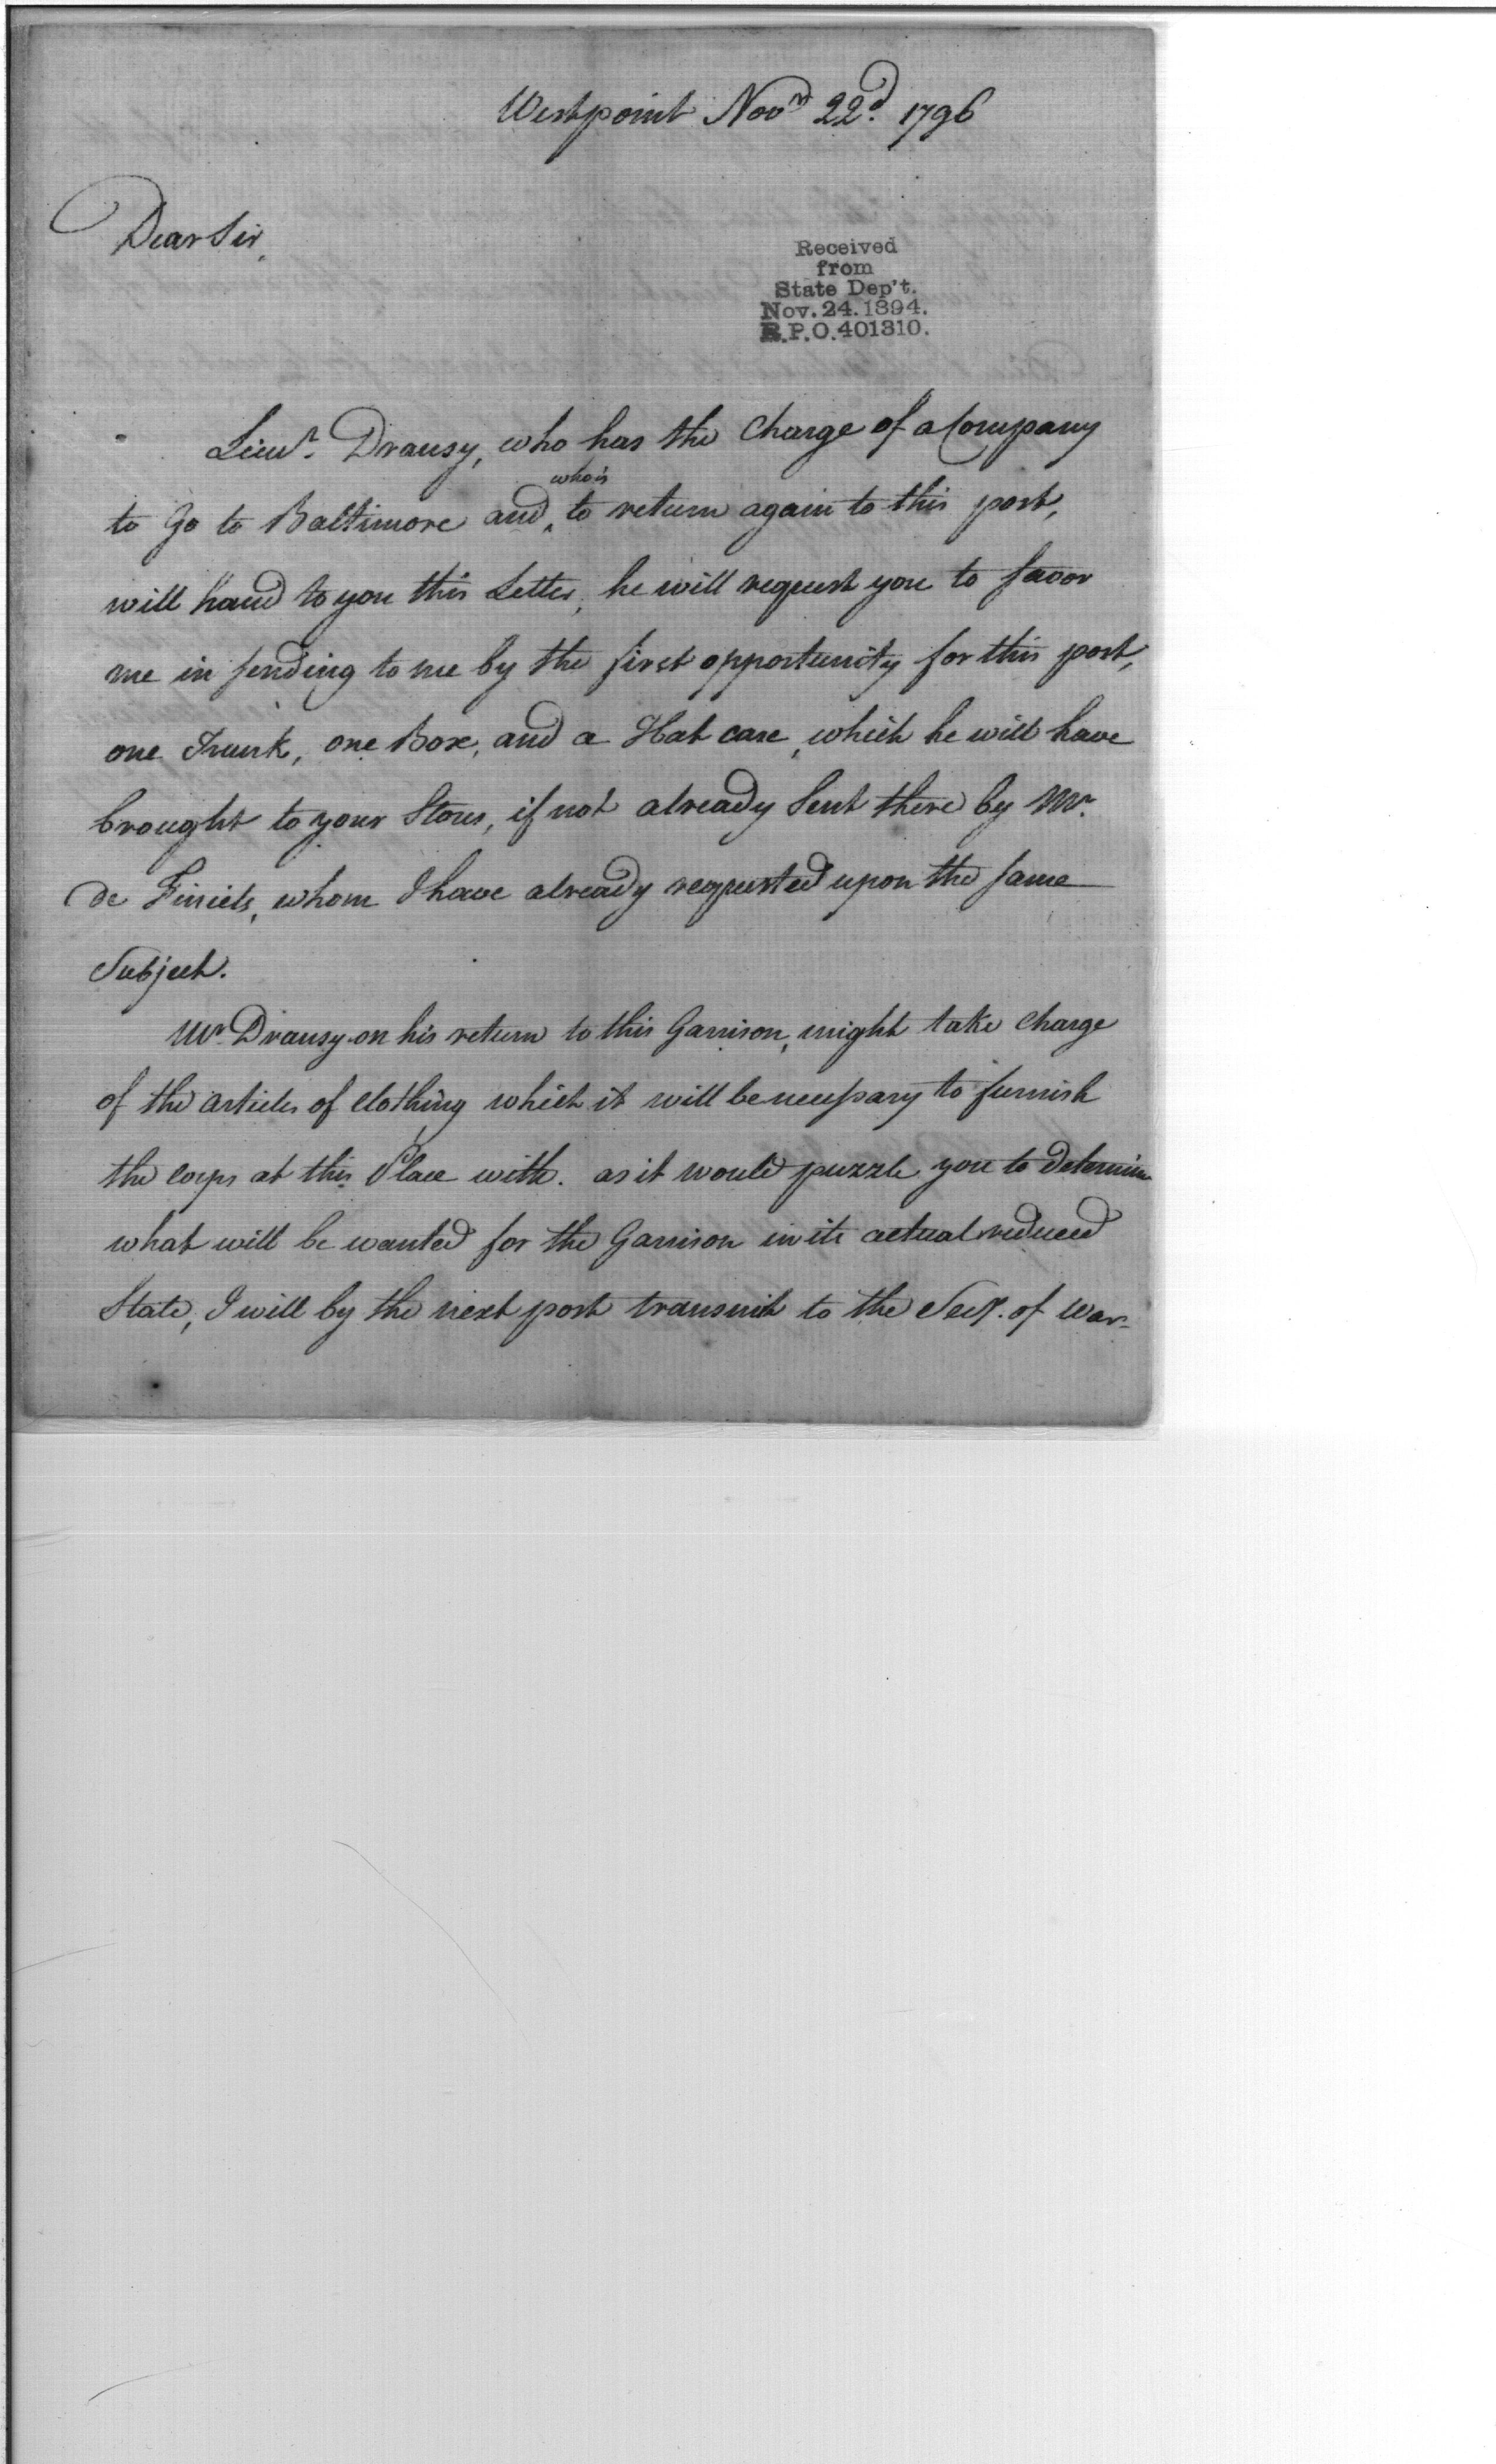 Westpoint Novr 22d. 1796
Dear Sir,
Received
from
State Dep't.
Nov. 24. 1894.
R.P.O. 401310.
Lieut. Dransy, who has the Charge of a Company
who is
to Go to Baltimore and ‸ to return again to this post,
will hand to you this Letter, he will request you to favor
me in sending to me by the first opportunity for this post,
one Trunk, one Box, and a Hat case, which he will have
brought to your Stores, if not already Sent there by Mr.
de Finiels, whom I have already requested upon the same
Subject.
Mr. Dransy on his return to this Garrison, might take Charge
of the articles of Clothing which it will be necessary to furnish
the corps at this Place with. as it would puzzle you to determine
what will be wanted for the Garrison in its actual reduced
State, I will by the next post transmit to the Secy. of War